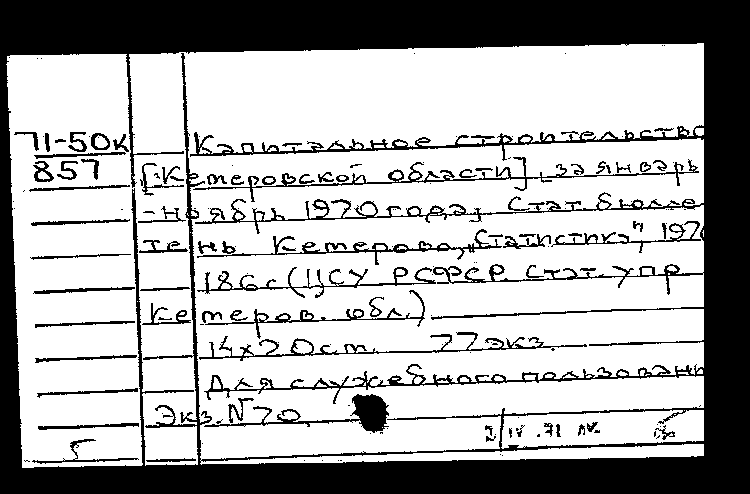 71-50к Капитальное строительство
857 [Кемеровской области] за январь
-ноябрь 1970 года. Стат. бюлле
тень Кемерово, „Статистика", 197
186 с (ЦСУ РСФСР. Стат. упр
Кемеров. обл.)
14х20 см. 77 экз.
Для служебного пользовани
Экз. N 70
5 2/IV.71